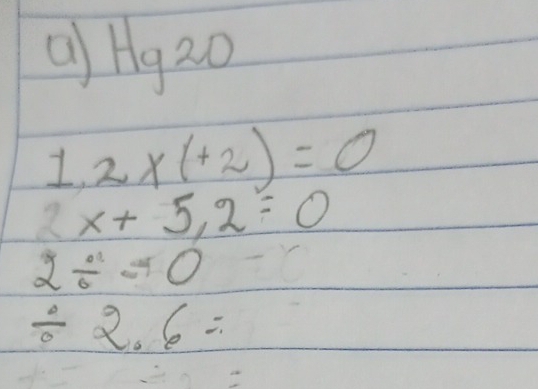 a) Hg20
1,2 x (+2) = 0
2 x + 5,2 = 0
2 ÷ = 0
÷ 2.6 =